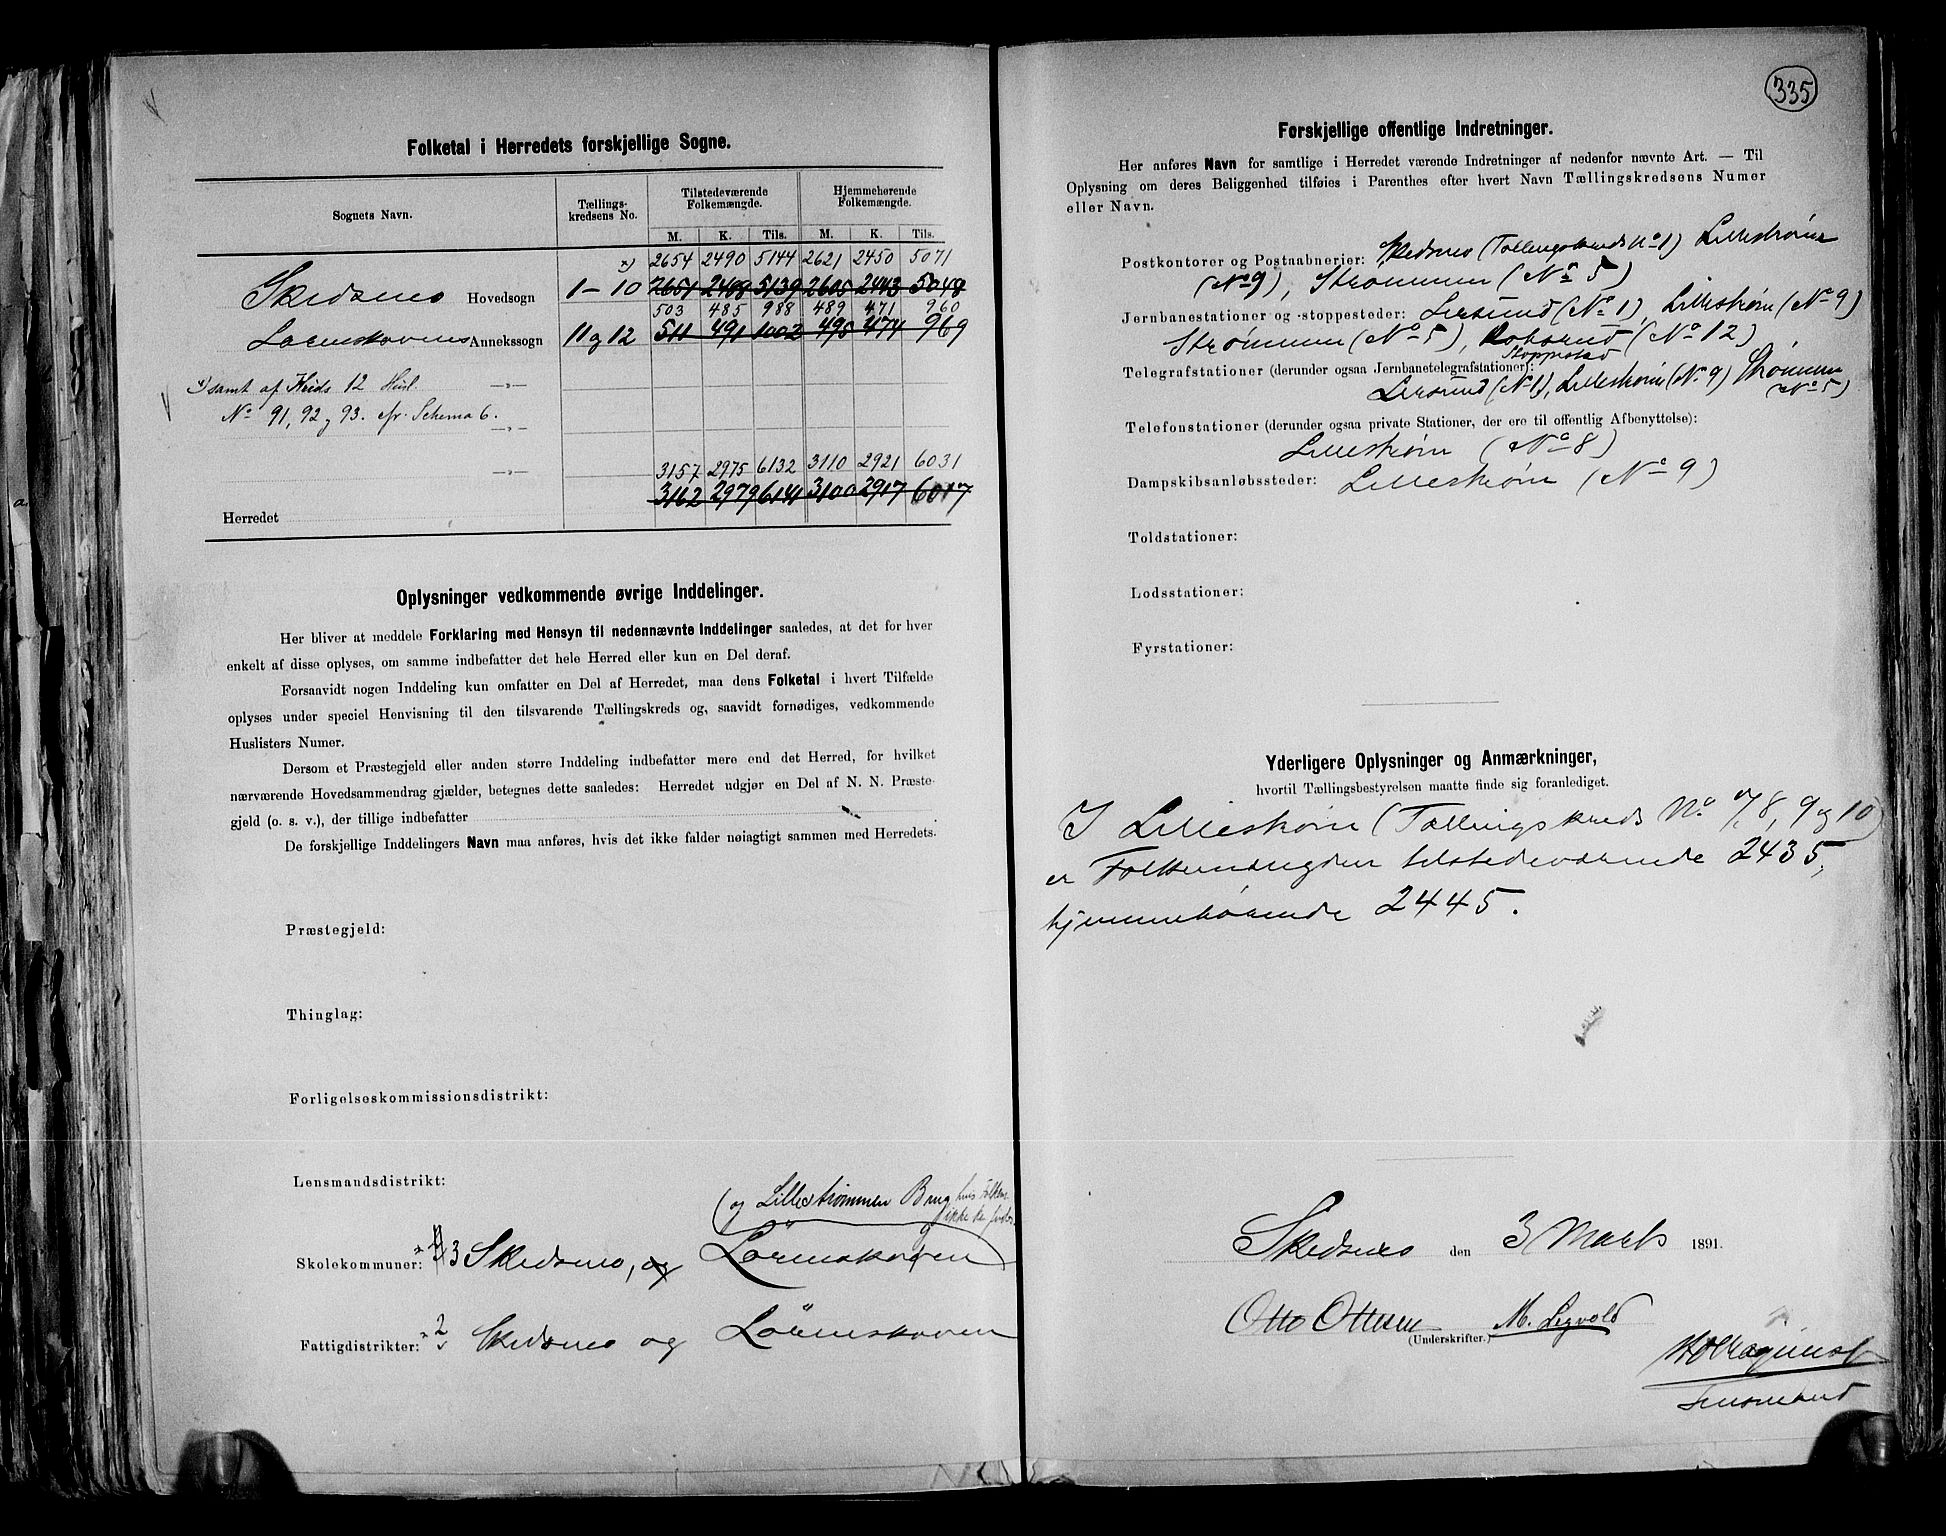 Folketal i Herredets forskjellige Sogne.
Sognets Navn.
Tællings-
kredsens No.
Tilstedeværende
Folkemængde.
Hjemmehørende
Folkemængde.
M. K. Tils. M. K. Tils.
x) 2654 2490 5144 2621 2450 5071
Skedsmo Hovedsogn 1-10 2651 2488 5139 2605 2443 5048
503 485 988 489 471 960
Lørenskovens Annekssogn 11 og 12 511 491 1002 495 474 969
x) samt af Kreds 12 Husl. —„—
No 91, 92 og 93. cfr. Schema 6. —„—
—„—
3157 2975 6132 3110 2921 6031
3162 2979 6141 3100 2917 6017
Herredet
Oplysninger vedkommende øvrige Inddelinger.
Her bliver at meddele Forklaring med Hensyn til nedennævnte Inddelinger saaledes, at det for hver
enkelt af disse oplyses, om samme indbefatter det hele Herred eller kun en Del deraf.
Forsaavidt nogen Inddeling kun omfatter en Del af Herredet, maa dens Folketal i hvert Tilfælde
oplyses under speciel Henvisning til den tilsvarende Tællingskreds og, saavidt fornødiges, vedkommende
Huslisters Numer.
Dersom et Præstegjeld eller anden større Inddeling indbefatter mere end det Herred, for hvilket
nærværende Hovedsammendrag gjælder, betegnes dette saaledes: Herredet udgjør en Del af N. N. Præste-
gjeld (o. s. v.), der tillige indbefatter
De forskjellige Inddelingers Navn maa anføres, hvis det ikke falder nøiagtigt sammen med Herredets.
Præstegjeld:
Thinglag:
Forligelseskommissionsdistrikt:
Lensmandsdistrikt:
(og Lillestrømmen Brug hvis Folkem.
ikke kan findes
Skolekommuner: 3 Skedsmo, og Lørenskoven
Fattigdistrikter: 2 Skedsmo og Lørenskoven
335
Forskjellige offentlige Indretninger.
Her anføres Navn for samtlige i Herredet værende Indretninger af nedenfor nævnte Art. — Til
Oplysning om deres Beliggenhed tilføies i Parenthes efter hvert Navn Tællingskredsens Numer
eller Navn.
Postkontorer og Postaabnerier: Skedsmo (Tællingskreds No 1) Lillestrøm
(No 9), Strømmen (No 5)
Jernbanestationer og -stoppesteder: Lersund (No 1), Lillestrøm (No 9)
Strømmen (No 5), Robsrud (No 12)
Stoppested
Telegrafstationer (derunder ogsaa Jernbanetelegrafstationer):
Lersund (No 1), Lillestrøm (No 9) Strømmen
(No 5)
Telefonstationer (derunder ogsaa private Stationer, der ere til offentlig Afbenyttelse):
Lillestrøm (No 8)
Dampskibsanløbssteder: Lillestrøm (No 9)
Toldstationer:
Lodsstationer:
Fyrstationer:
Yderligere Oplysninger og Anmærkninger,
hvortil Tællingsbestyrelsen maatte finde sig foranlediget.
I Lillestrøm (Tællingskreds No 7, 8, 9 og 10)
er Folkemængden tilstedeværende 2435,
hjemmehørende 2445.
Skedsmo den 3 Marts 1891.
Otto Ottesen M. Legvold
(Underskrifter.)